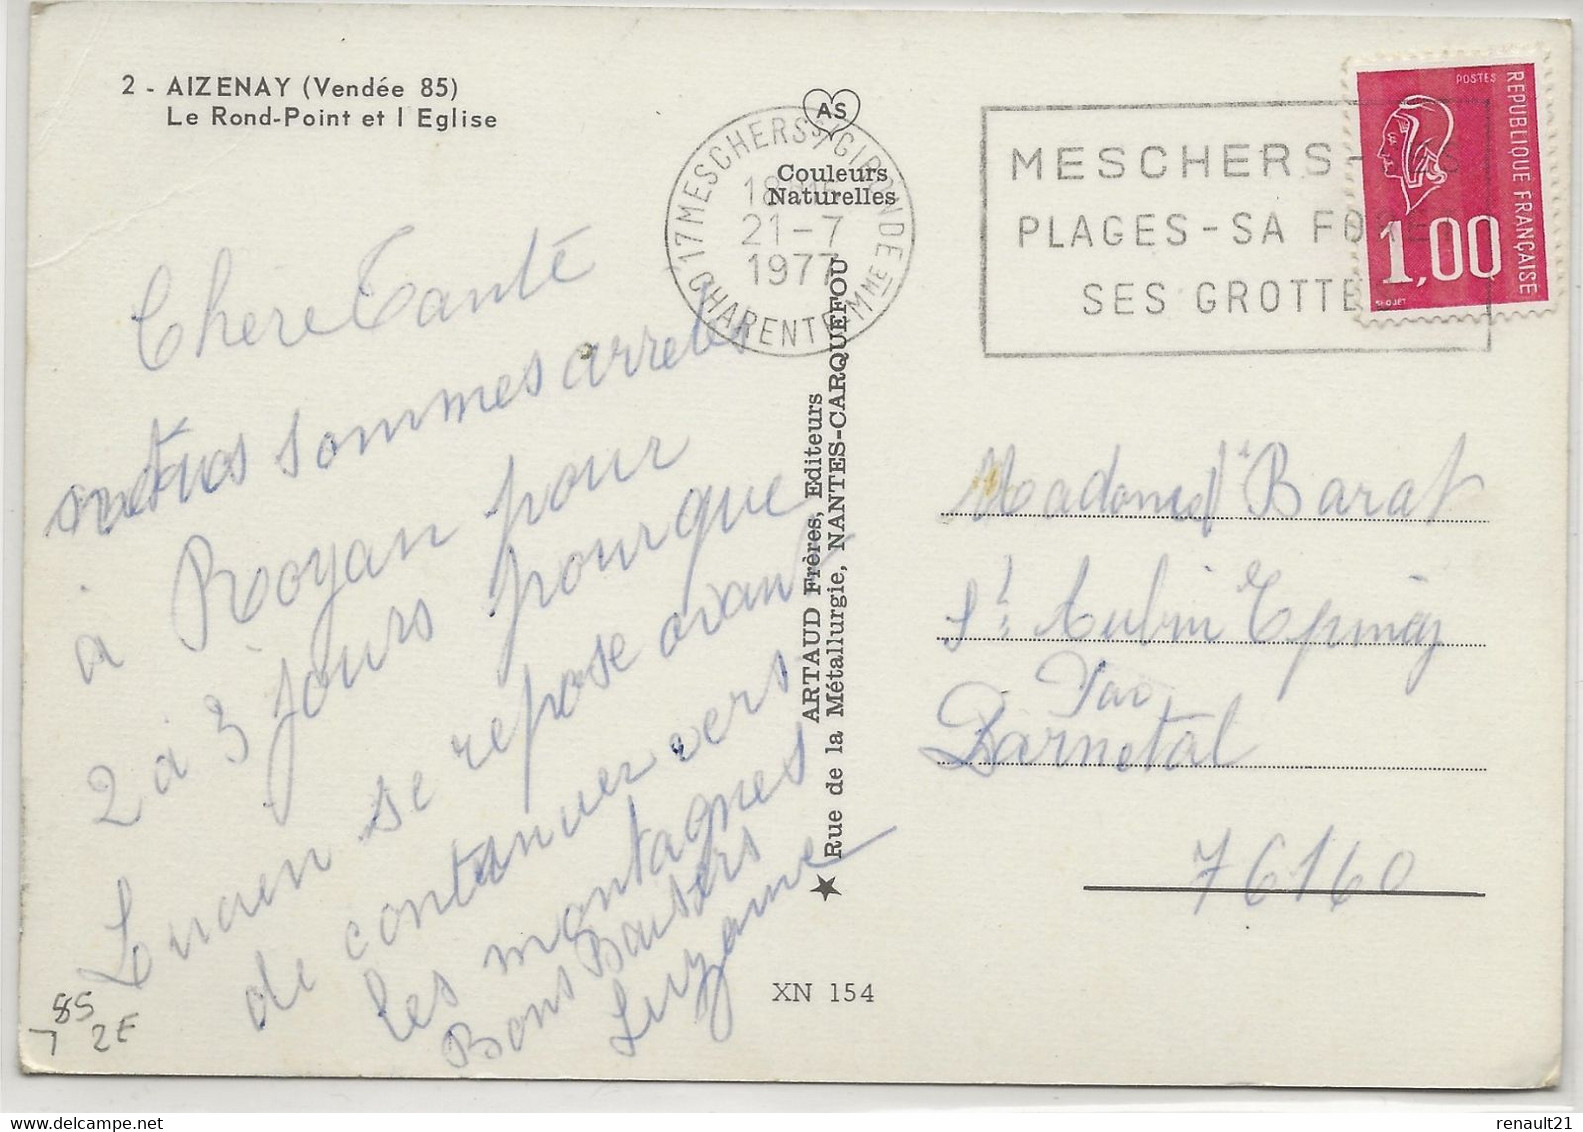 2 - AIZENAY (Vendée 85)
Le Rond-Point et l Eglise
AS
Couleurs
Naturelles
17 MESCHERS S/GIRONDE
18H15
21-7
1977
CHARENTE MME
MESCHERS-
PLAGES-SA
SES GROTTES
POSTES
REPUBLIQUE FRANÇAISE
1,00
Chere Tante
nous sommes arretes
à Royan pour
2 a 3 jours pourque
Lucien se repose avant
de contunuer vers
les montagnes
Bons Baisers
Suzanne
ARTAUD Frères, Editeurs
Rue de la Métallurgie, NANTES-CARQUEFOU
Barat
St Aubin Epinay
Par
Darnetal
76160
XN 154
85
7 2E
www.delcampe.net
renault21